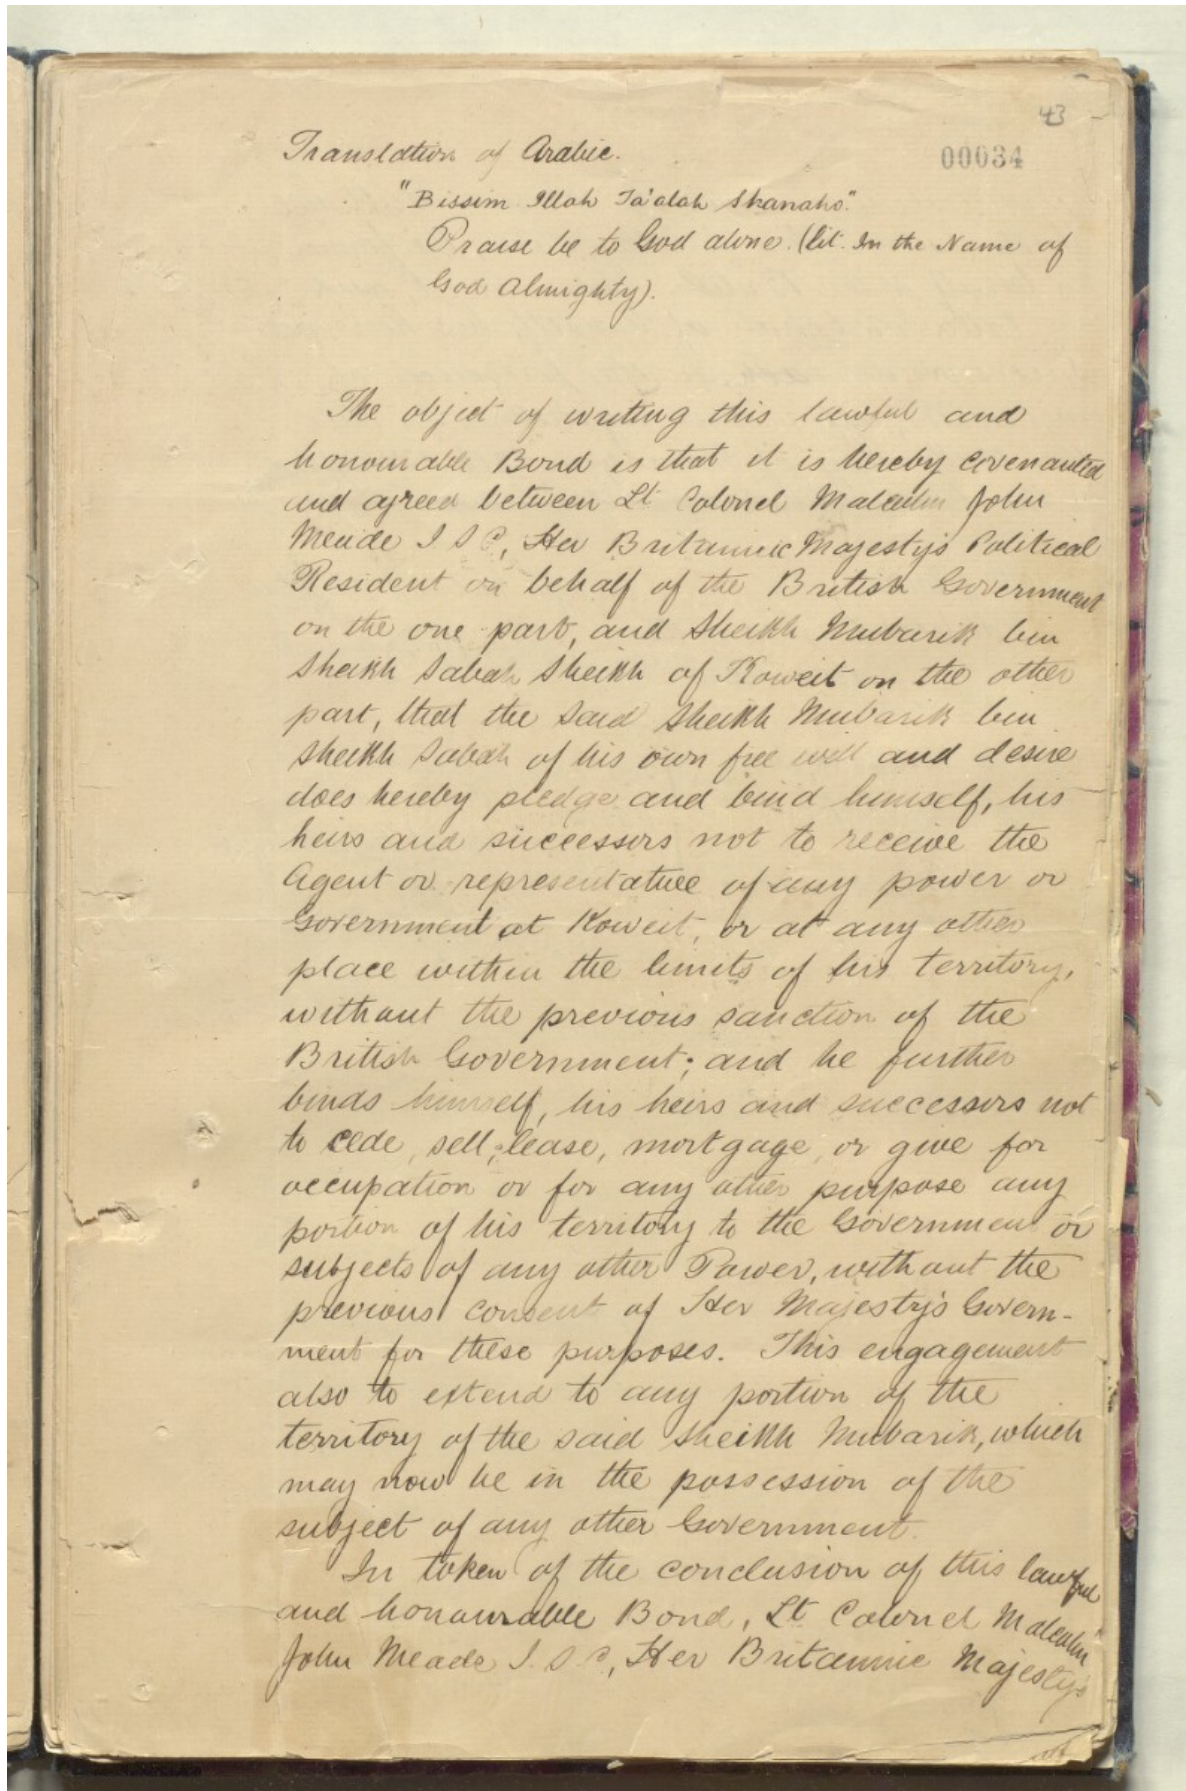 43
00034
Translation of Arabic.
"Bissim Illah Ta'alah Shanaho".
Praise be to God alone. (lit. In the Name of
God Almighty).
The object of writing this lawful and
honourable Bond is that it is hereby covenanted
and agreed between Lt. Colonel Malcolm John
Meade I S C, Her Britannic Majesty's Political
Resident on behalf of the British Government
on the one part, and Sheikh Mubarik bin
Sheikh Sabah Sheikh of Koweit on the other
part, that the said Sheikh Mubarik bin
Sheikh Sabah of his own free will and desire
does hereby pledge and bind himself, his
heirs and successors not to receive the
Agent or representative of any power or
Government at Koweit, or at any other
place within the limits of his territory,
without the previous sanction of the
British Government; and he further
binds himself, his heirs and successors not
to cede, sell, lease, mortgage, or give for
occupation or for any other purpose any
portion of his territory to the Government or
subjects of any other Power, without the
previous consent of Her Majesty's Govern-
ment for these purposes. This engagement
also to extend to any portion of the
territory of the said Sheikh Mubarik, which
may now be in the possession of the
subject of any other Government.
In token of the conclusion of this lawful
and honourable Bond, Lt. Colonel Malcolm
John Meade I. S. C., Her Britannic Majesty's